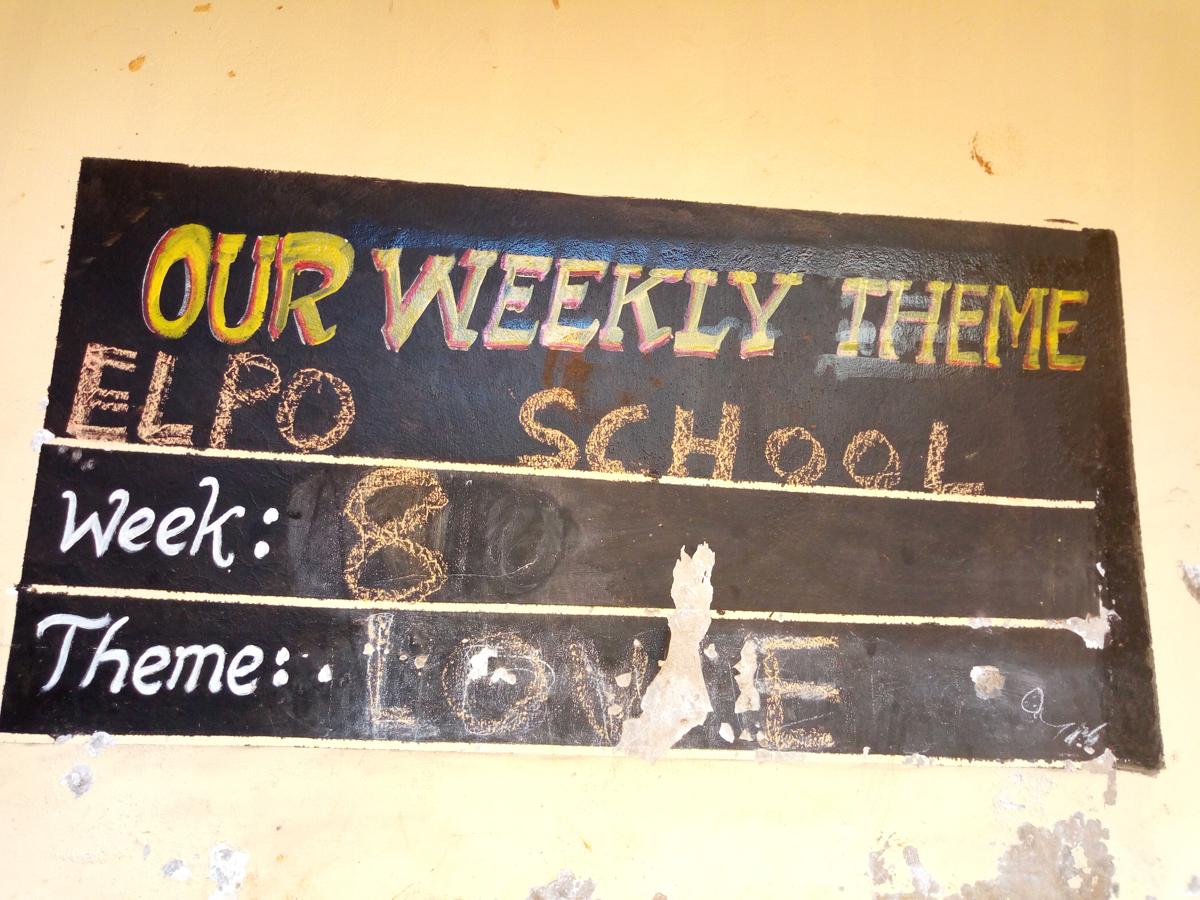 OUR WEEKLY THEME
ELPO SCHOOL
Week: 8
Theme: LOVE